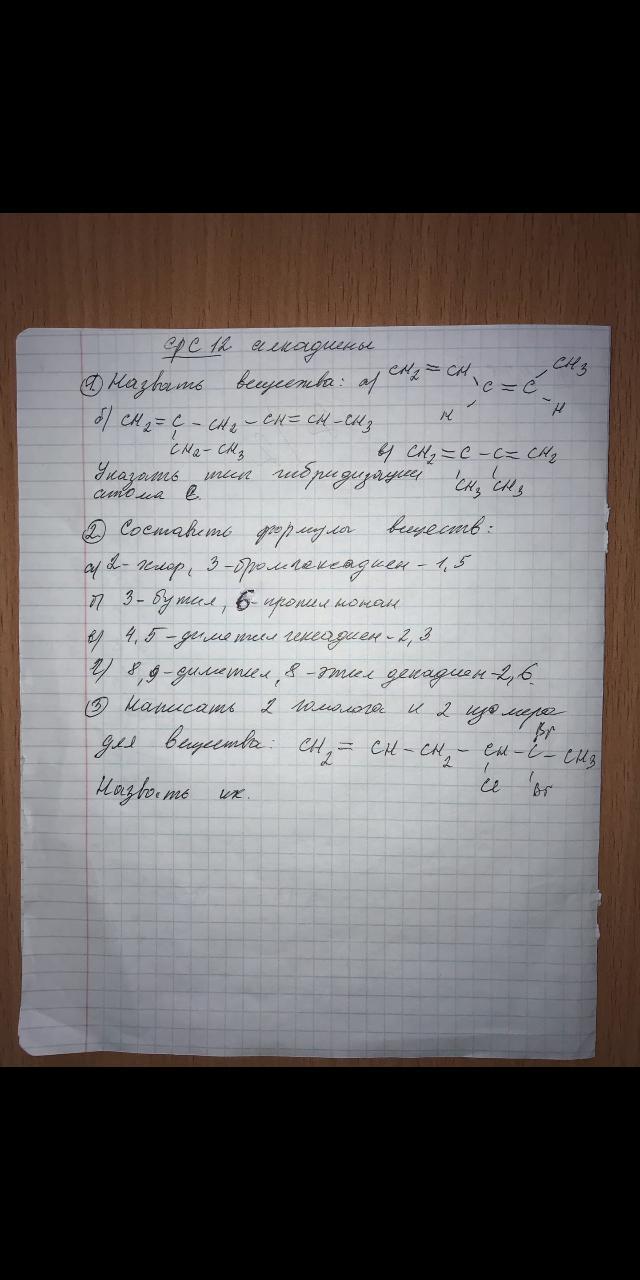 СРС 12 алкадиены
① Назвать вещества: а) CH₂=CH C=C CH₃
H H
б) CH₂=C-CH₂-CH=CH-CH₃
CH₂-CH₃
в) CH₂=C-C=CH₂
CH₃ CH₃
Указать тип гибридизации
атома C.
② Составить формулы веществ:
а) 2-хлор, 3-бромгексадиен-1,5
б) 3-бутил, 6-пропил нонан
в) 4,5-диметил гексадиен-2,3
г) 8,9-диметил, 8-этил декадиен-2,6.
③ Написать 2 гомолога и 2 изомера
для вещества: CH₂=CH-CH₂-CH-C-CH₃
Br
Cl Br
Назвать их.